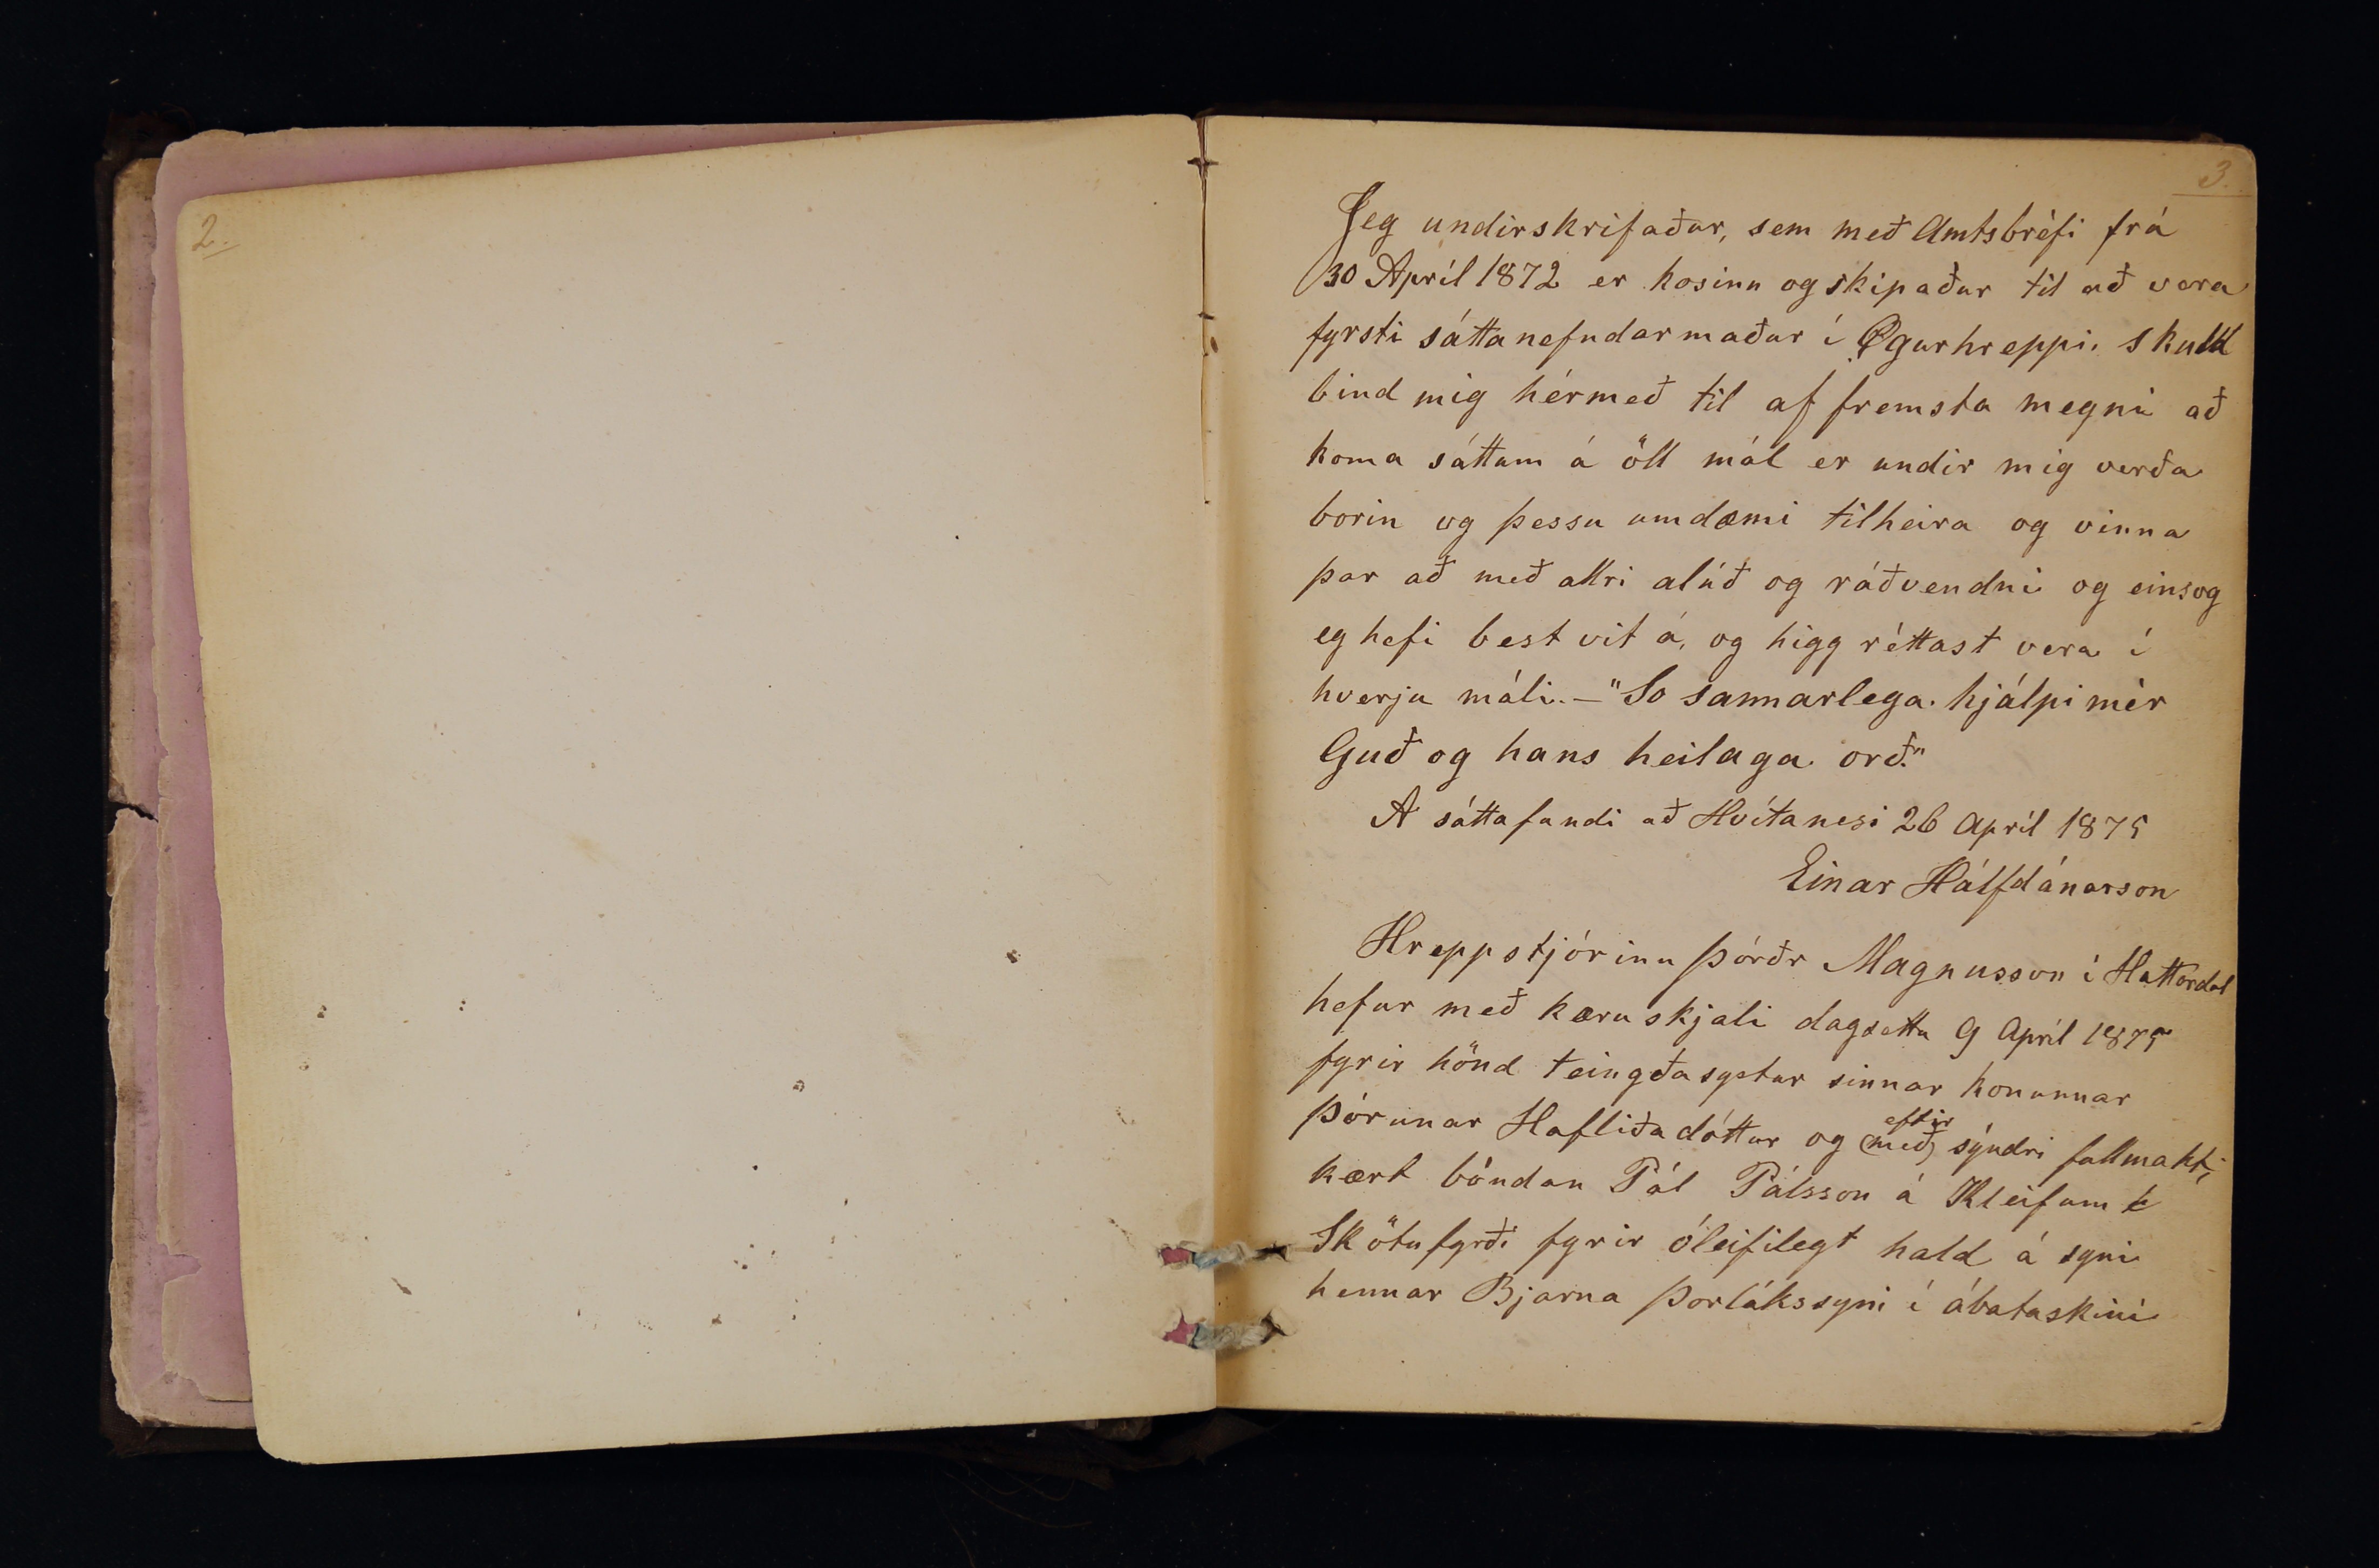 2.
3.
Jeg undirskrifaður, sem með Amtsbréfi frá
30 Apríl 1872 er kosinn og skipaður til að vera
fyrsti sáttanefndarmaður í Øgurhreppi. skuld
bind mig hérmeð til af fremsta megni að
koma sáttum á öll mál er undir mig verða
borin og þessu umdæmi tilheira og vinna
þar að með allri alúð og ráðvendni og einsog
eg hefi best vit á, og higg réttast vera í
hverju máli. - "So sannarlega hjálpi mér
Guð og hans heilaga orð."
A sáttafundi að Hvítanesi 26 Apríl 1875
Einar Hálfdánarson
Hreppstjórinn Þórðr Magnusson í Hattardal
hefur með kæruskjali dagsettu 9 Apríl 1875
fyrir hönd teingðasystur sinnar konunnar
eftir
Þórunar Hafliðadóttur og (með) sýndri fullmakt,
kært bóndan Pál Pálsson á Kleifum í
Skötufyrði fyrir óleifilegt hald á syni
hennar Bjarna Þorlákssyni í ábataskini